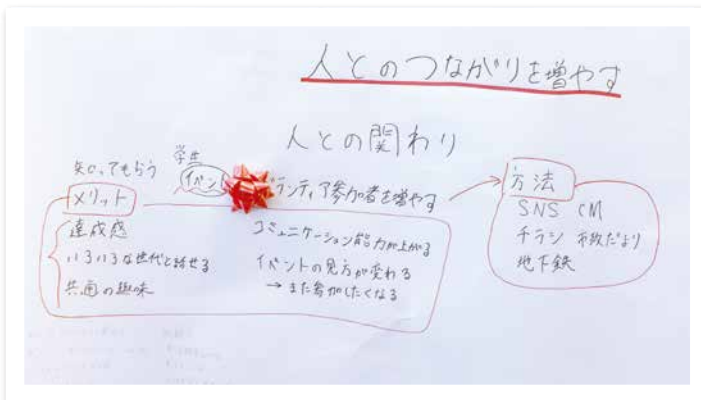 人とのつながりを増やす
人との関わり
知ってもらう
学生
イベン
ランティア参加者を増やす
メリット
達成感
いろいろな世代と話せる
共通の趣味
コミュニケーション能力が上がる
イベントの見方が変わる
→また参加したくなる
方法
SNS CM
チラシ 市政だより
地下鉄